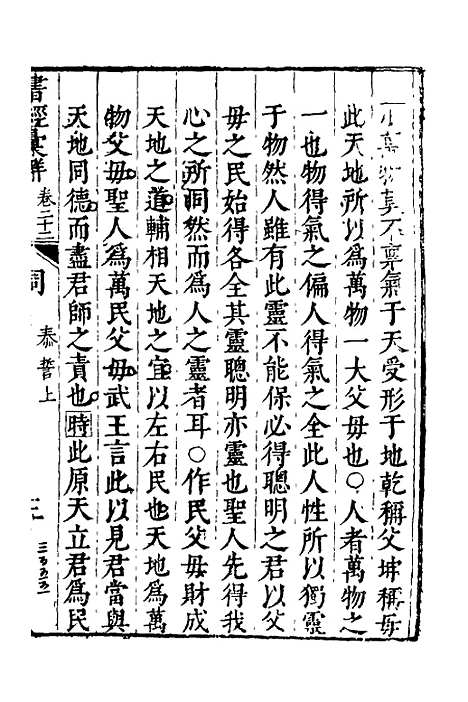 莫不稟氣于天受形于地乾稱父坤稱母
此天地所以為萬物一大父毋也○人者萬物之
一也物得氣之偏人得氣之全此人性所以獨靈
于物然人雖有此靈不能保必得聰明之君以父
毋之民始得各全其靈聰明亦靈也聖人先得我
心之所洞然而為人之靈者耳○作民父毋財成
天地之道輔相天地之宜以左右民也天地為萬
物父毋聖人為萬民父毋武王言此以見君當與
天地同德而盡君師之責也時此原天立君為民
書經彙解 卷二十二 周 泰誓上 三